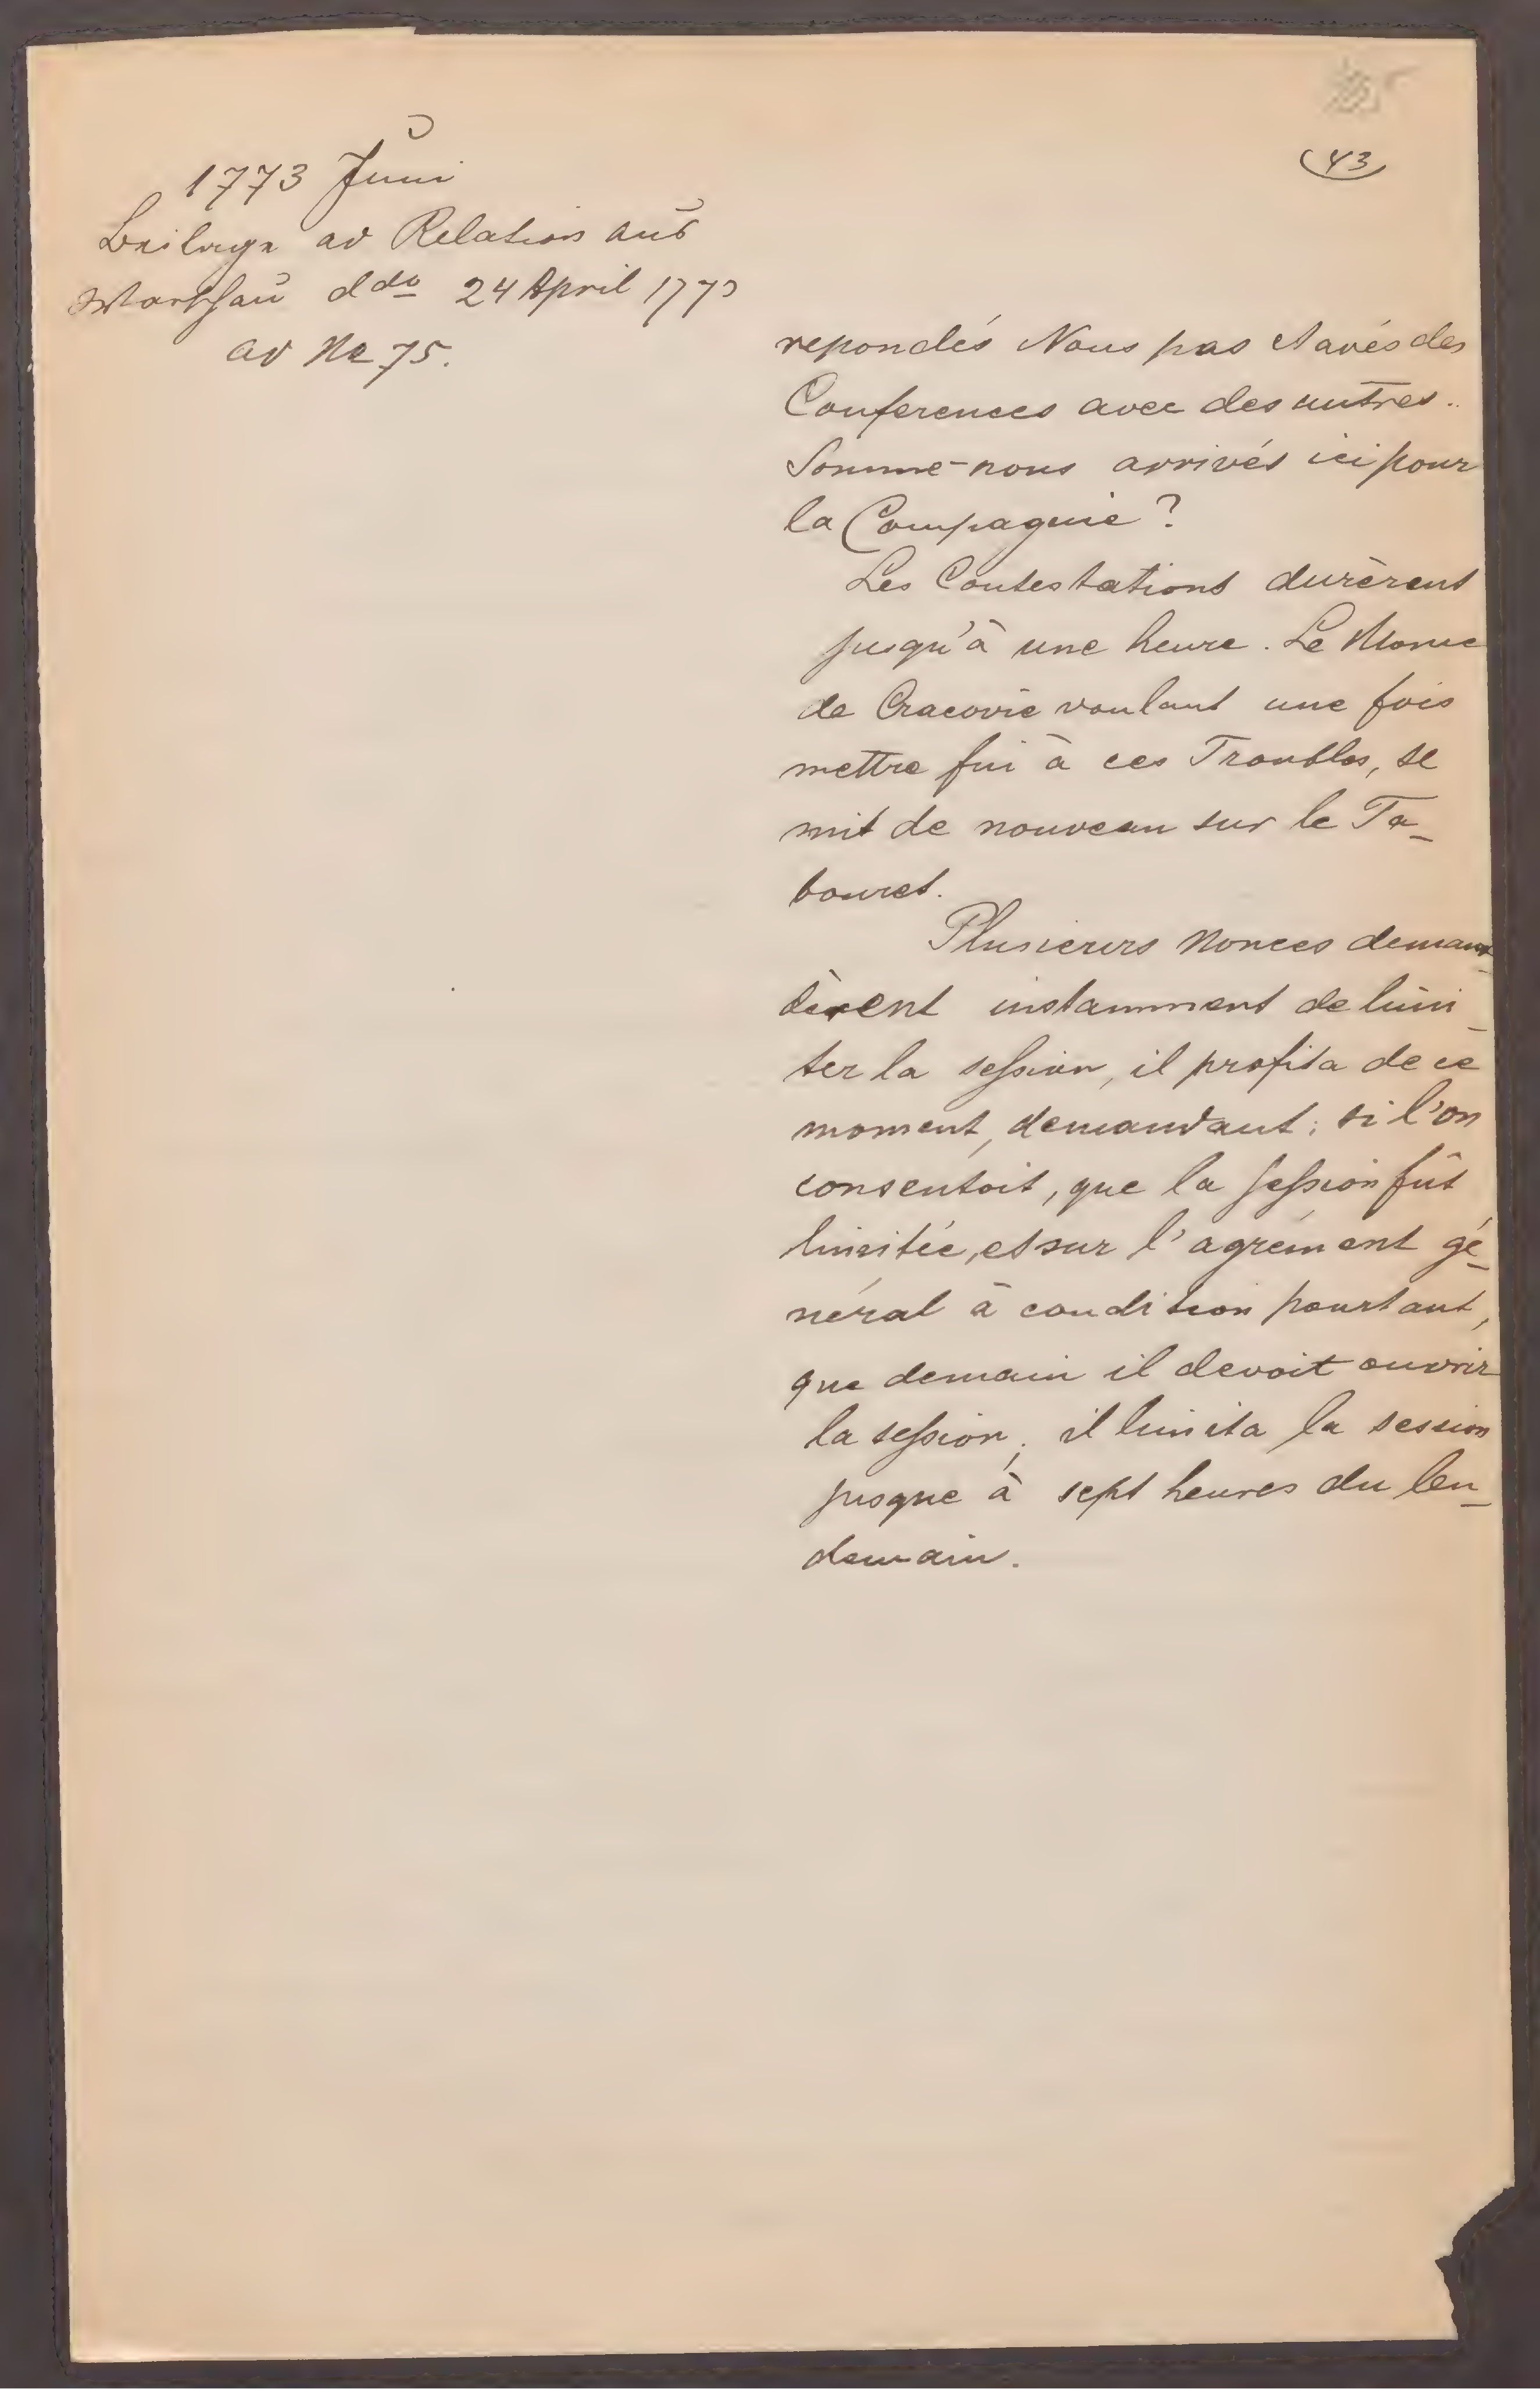 43
1773 Juni
Beilage ad Relation aus
Warschau ddo 24 April 1773
ad No 75.
repondés Nous pas et avés des
Conferences avec des autres..
Somme-nous arrivés ici pour
la Compagnie?
Les Contestations durèrent
jusqu'à une heure. Le Nonce
de Cracovie voulant une fois
mettre fin à ces Troubles, se
mit de nouveau sur le Ta-
bouret.
Plusieurs Nonces deman-
dèrent instamment de limi-
ter la session, il profita de ce
moment, demandant: si l'on
consentoit, que la session fût
limitée, et sur l'agrément gé-
néral à condition pourtant,
que demain il devoit ouvrir
la session; il limita la session
jusque à sept heures du len-
demain.